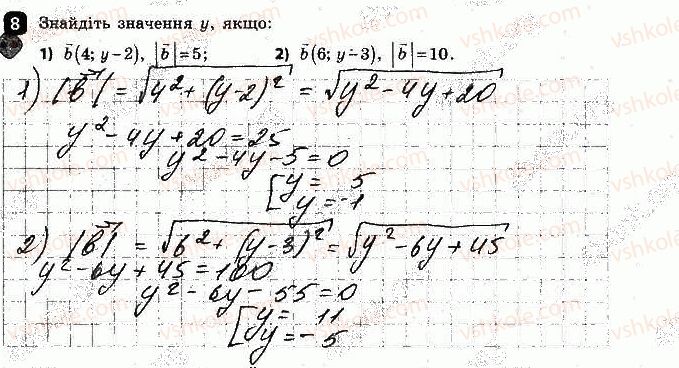 8 Знайдіть значення y, якщо:
1) b̄(4; y−2), |b̄|=5; 2) b̄(6; y−3), |b̄|=10.
1) |b⃗| = √(4² + (y−2)²) = √(y² − 4y + 20)
y² − 4y + 20 = 25
y² − 4y − 5 = 0
[ y = 5
y = −1
2) |b⃗| = √(6² + (y−3)²) = √(y² − 6y + 45)
y² − 6y + 45 = 100
y² − 6y − 55 = 0
[ y = 11
y = −5